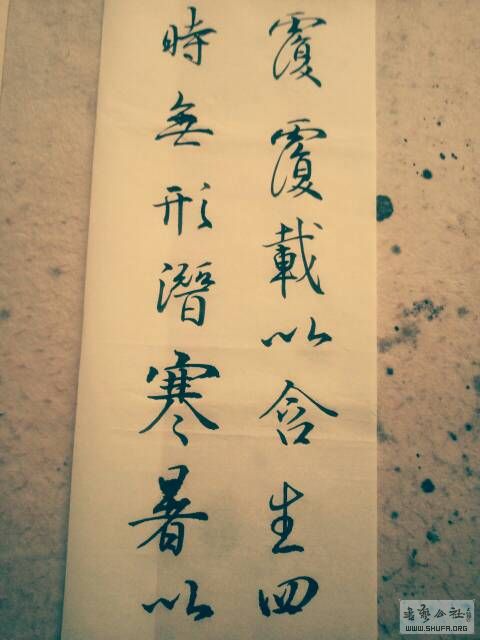 覆覆載以含生四
時無形潛寒暑以
WWW.SHUFA.ORG